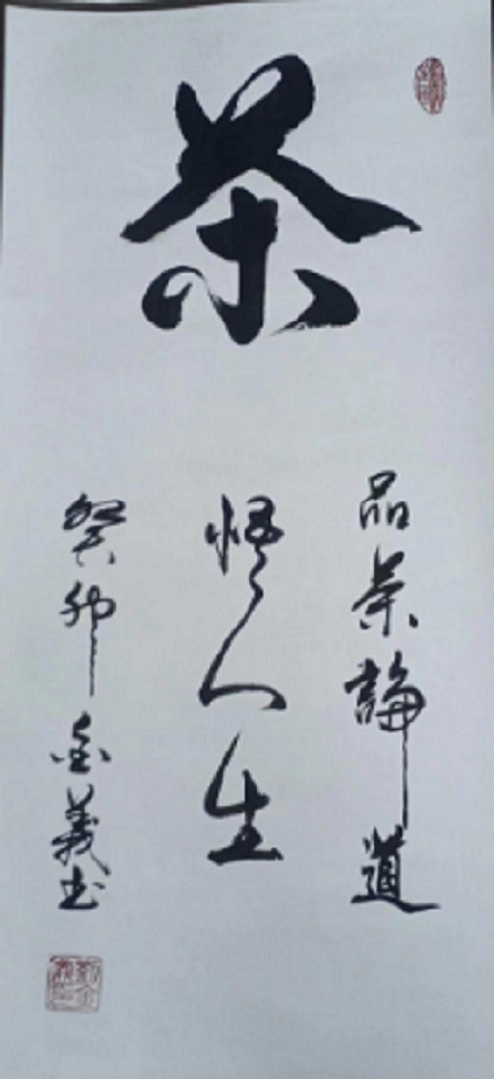 茶
品茶論道
悟人生
癸卯金義书